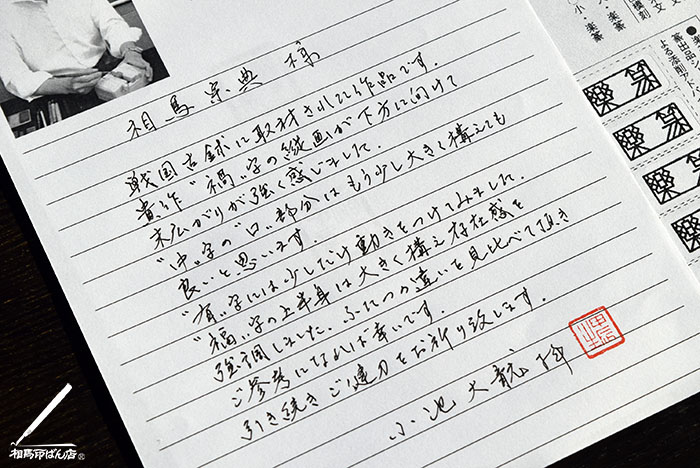 相馬宗典 様
戦国古鉥に取材されし作品です.
貴作"禍"字の縦画が下方に向けて
末広がりが強く感じました.
"中"字の"口"部分はもう少し大きく構えても
良いと思います.
"有"字には少しだけ動きをつけてみました.
"福"字の上半身は大きく構え存在感を
強調しました. ふたつの違いを見比べて頂き
ご参考になれば幸いです.
引き続きご健刀をお祈り致します.
小池大龍 拝
相馬印ばん店®